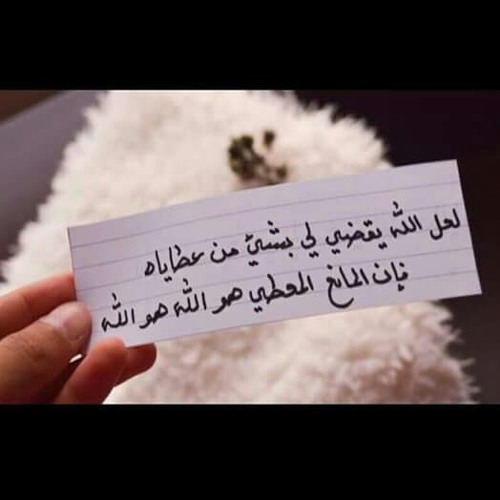 لعل الله يقضي لي بشيئ من عطاياه
فإن المانع المعطي هو الله هو الله